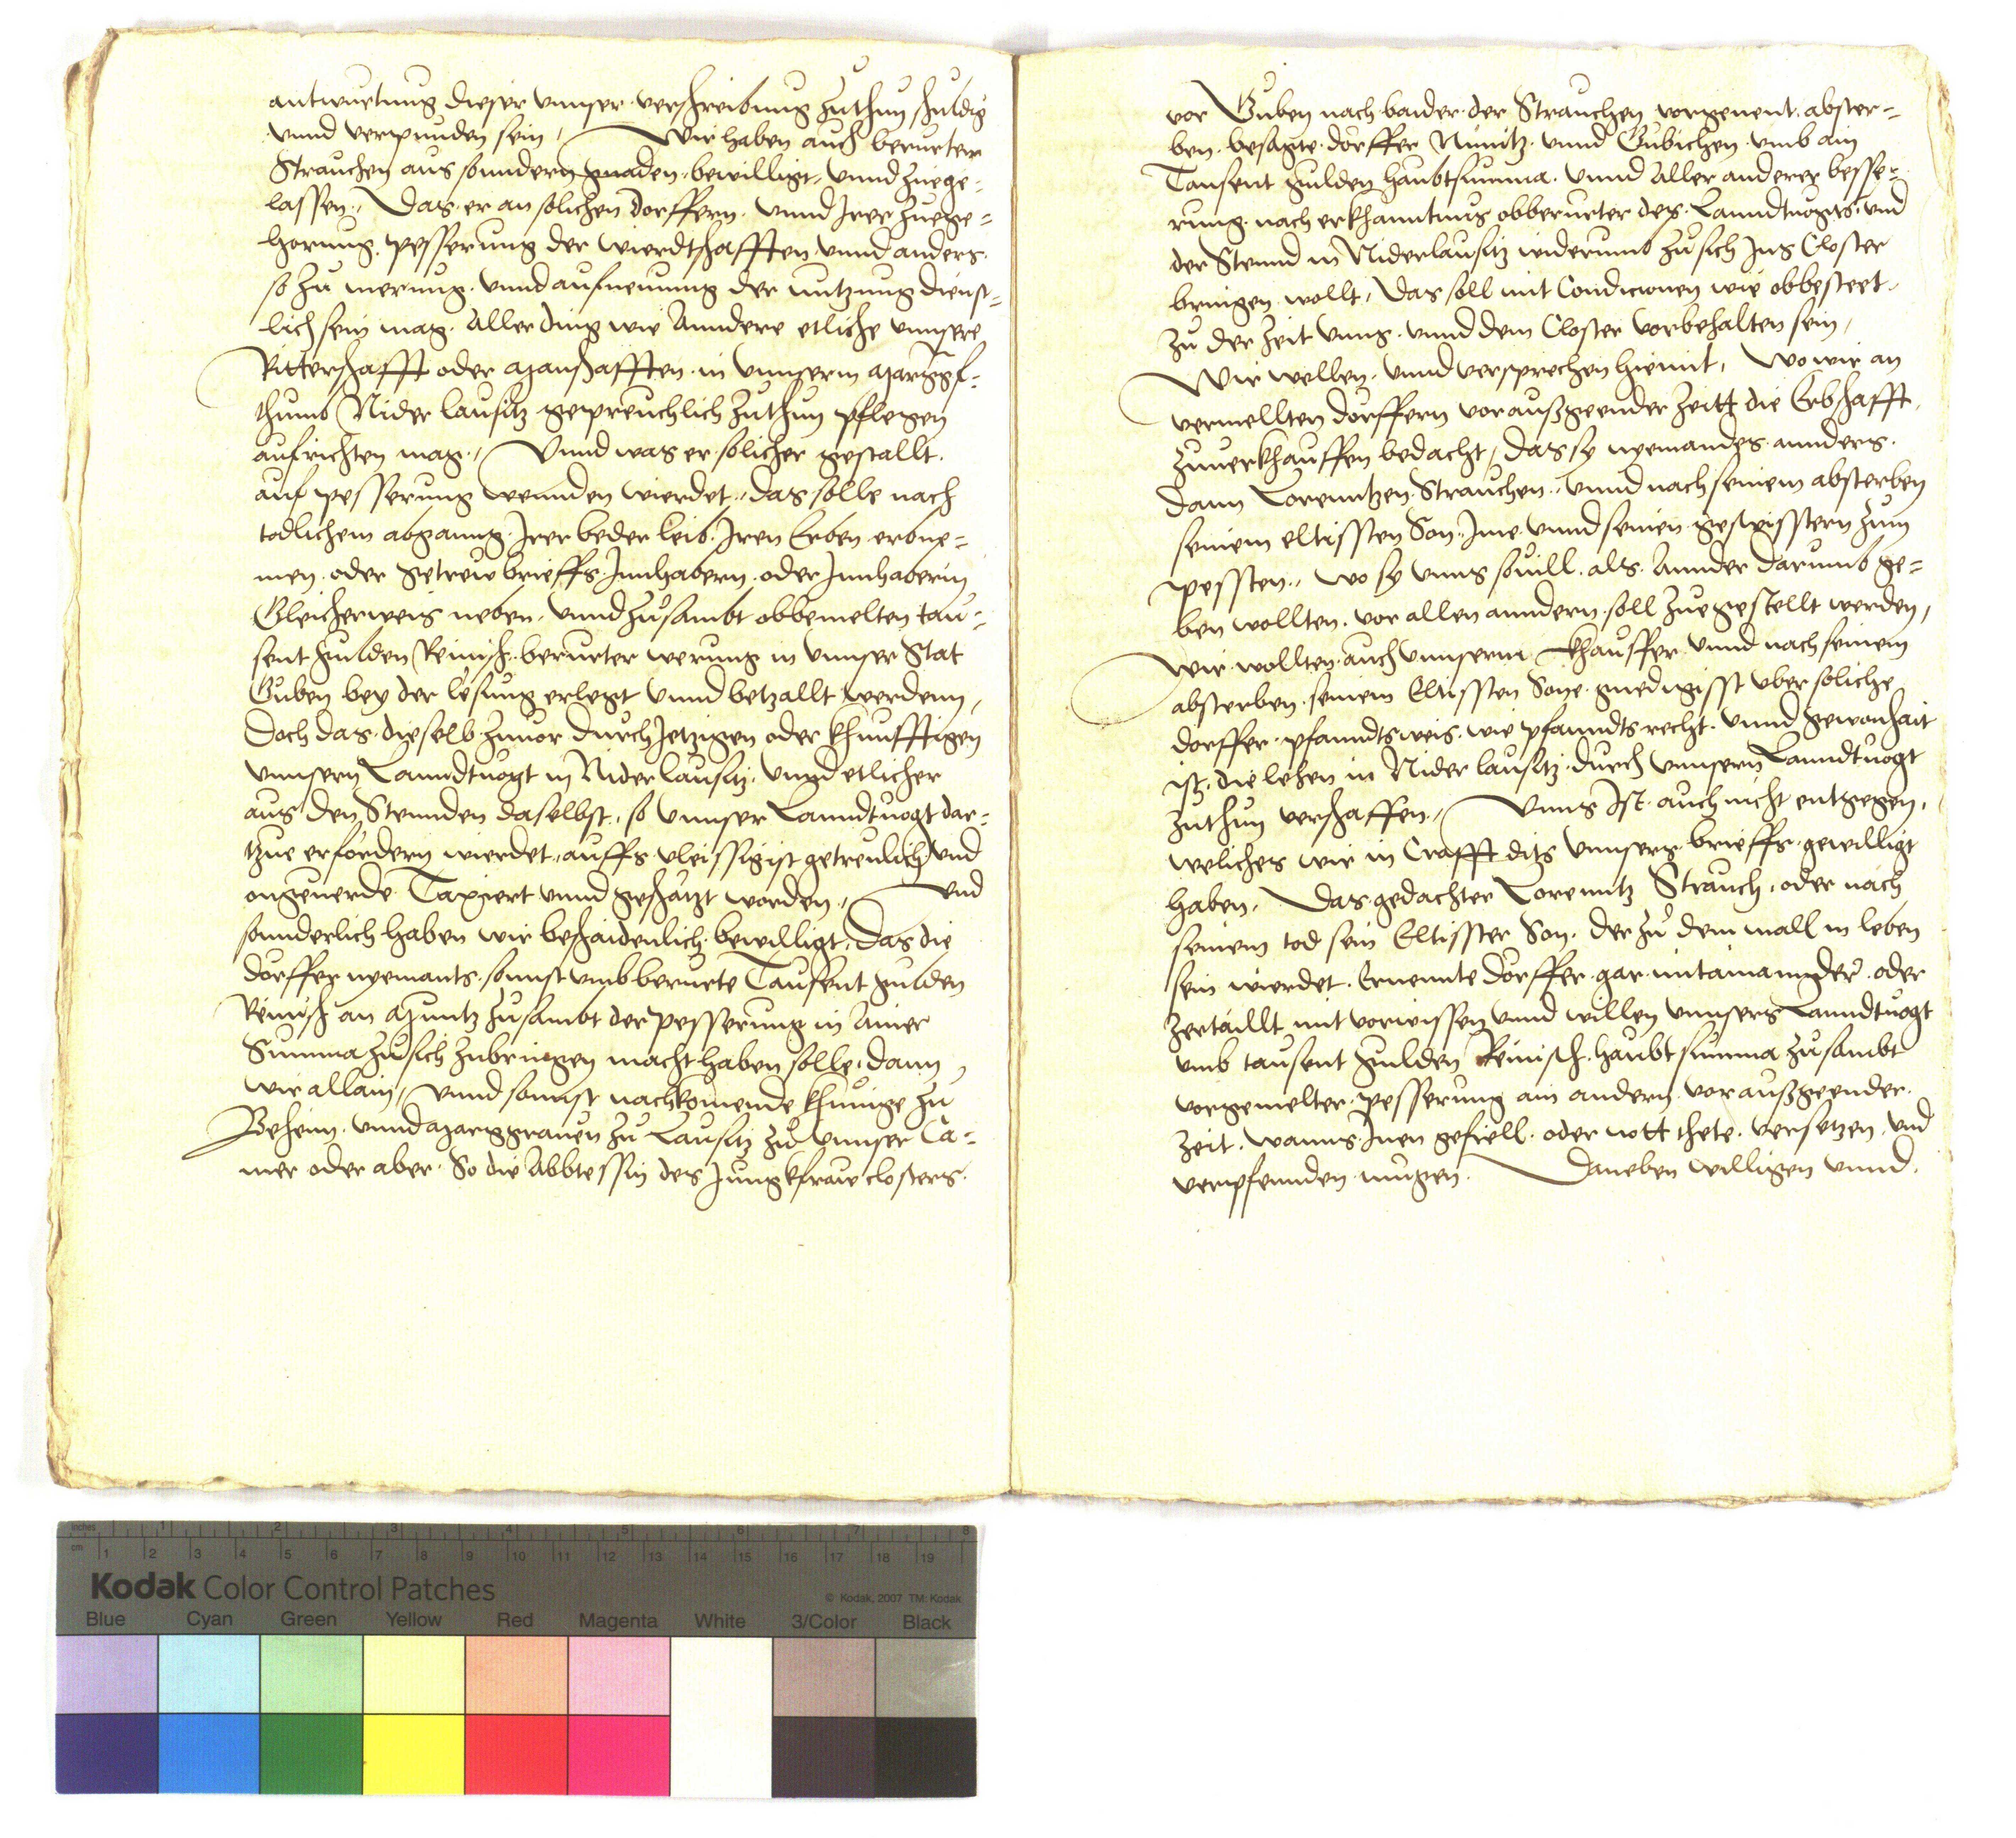 antwurtung dieser vnnser verschreibung zuthun schuldig
vnnd verpunden sein, Wir haben auch berurten
Strauchen aus sonndern gnaden bewilligt, vnnd zuege-
lassen, Das er an solichen dorffern vnnd Irer zuege-
horung, pesserung der wierdtschafften vnnd anders
so zu merung vnnd aufnemung der nutzung dienst-
lich sein mag, Aller ding wie Anndere etliche vnnsere
Ritterschafft oder Manschafften in vnnserm Marggf-
thumb Nider lausitz gepreuchlich zuthun pflegen
aufrichten mag, Vnnd was er solicher gestallt
auf pesserung wennden wierdet, das solle nach
todlichem abganng Irer beder leib, Iren Erben erbne-
men oder getrew brieffs Innhabern oder Innhaberin
Gleicherweis neben vnnd zusambt obbemelten tau-
sent gulden Reinisch berurter werung in vnnser Stat
Guben bey der lesung erlegt vnnd betzallt werdenn,
Doch das dieselb zuuor durch Jetzigen oder khunfftigen
vnnsern Lanndtuogt in Nider lausitz, vnnd etlicher
aus den Stennden daselbst, so vnnser Lanndtuogt dar-
tzue erfordern wierdet, auffs vleissigist getreulich vnd
ongeuerde Taxiert vnnd geschatzt worden, Vnd
sonnderlich haben wir beschaidenlich bewilligt, Das die
dorffer nyemants sonnst vmb berurte Tausent gulden
Reinisch an Muntz zusambt der pesserung in Ainer
Summa zu sich zubringen macht haben solle, dann
wir allain, vnnd sonnst nachkomende khunige zu
Beheim vnnd Marggrauen zu Lausitz zu vnnser Ca-
mer oder aber So die Abbtessin des Jungkfraw closters
vor Guben nach baider der Strauchen vorgenent abster-
ben besagte dorffer Nimitz vnnd Gubichen vmb ain
Tausent gulden haubtsumma vnnd Aller anderer besse-
rung nach erkhanntnus obberurter des Lanndtuogts vnd
der Stennd in Niderlausitz widerumb zu sich Ins Closter
bringen wollt, Das soll mit Condicionen wie obbesteet
zu der zeit vnns vnnd dem Closter vorbehalten sein,
Wir wellen vnnd versprechen hiemit, Wo wir an
vermellten dorffern voraußgeender zeitt die Erbschafft
zuuerkhauffen bedacht, das sy nyemandes annders
dann Lorenntzen Strauchen, vnnd nach seinem absterben
seinem eltissten Son, Ime vnnd seinen geschwisstern zum
pessten, wo sy vnns souill als Annder darumb ge-
ben wollten, vor allen anndern soll zuegestellt werden,
Wir wollten auch vnnserm khauffer vnnd nach seinem
absterben seinem Eltissten Sone gnedigisst vber soliche
dorffer pfanndtsweis, wie pfanndts recht vnnd gewonhait
ist, die lehen in Nider lausitz durch vnnsern Lanndtuogt
zuthun verschaffen, Vnns Ist auch nicht entgegen,
weliches wir in Crafft dits vnnsers brieffs gewilligt
haben, Das gedachter Lorenntz Strauch, oder nach
seinem tod sein Eltisster Son, der zu dem mall in leben
sein wierdet, Ernennte dorffer gar mitainannder oder
zertaillt mit vorwissen vnnd willen vnnsers Lanndtuogt
vmb tausent gulden Reinisch haubtsumma zusambt
vorgemelter pesserung ain andern voraußgeender
zeit, wanns Inen gefiell oder nott thete, versetzen vnd
verpfennden mugen. Daneben willigen vnnd